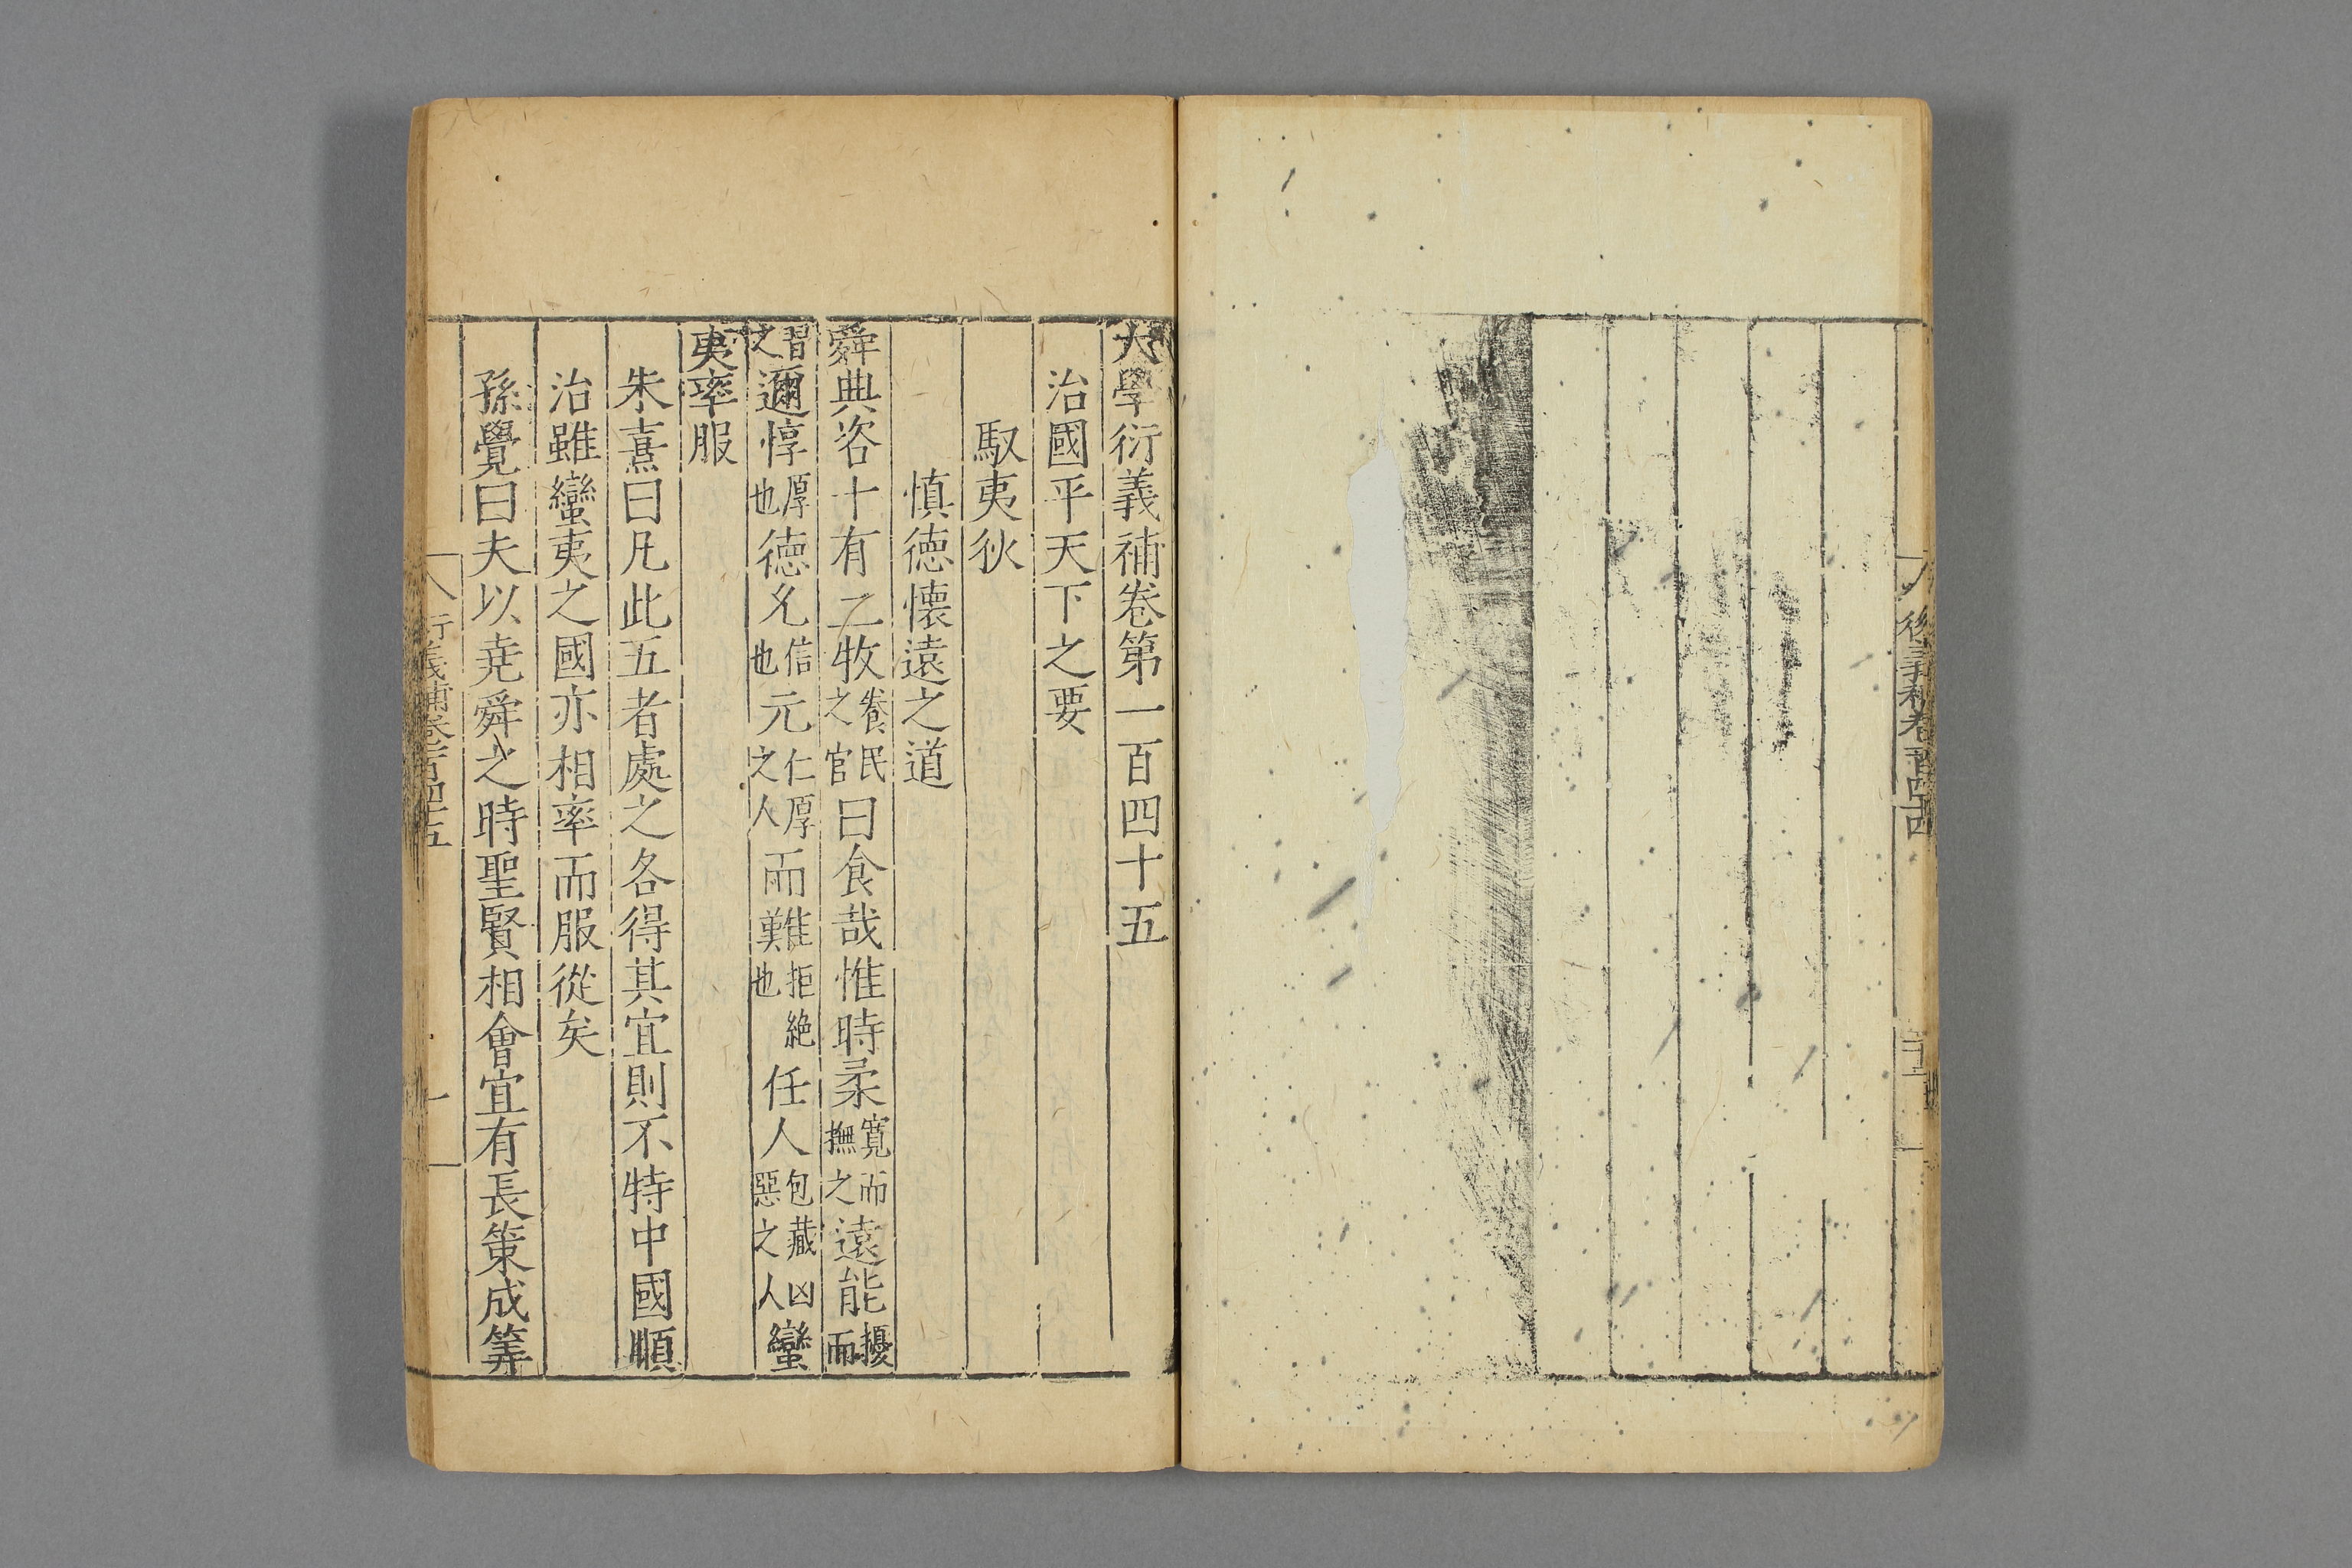 大學衍義補卷第一百四十五
治國平天下之要
馭夷狄
慎徳懷遠之道
舜典咨十有二牧養民之官曰食哉惟時柔寬而撫之遠能擾而
習之邇惇厚也徳允信也元仁厚之人而難拒絶也任人包藏凶惡之人蠻
夷率服
朱熹曰凡此五者處之各得其宜則不特中國順
治雖蠻夷之國亦相率而服從矣
孫覺曰夫以堯舜之時聖賢相會宜有長策成筭
衍義補卷一百四十五
一